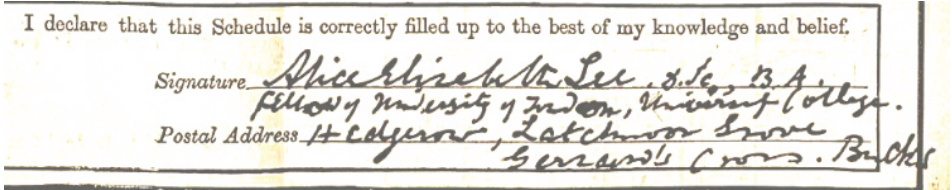 I declare that this Schedule is correctly filled up to the best of my knowledge and belief.
Signature Alice Elizabeth Lee D.Sc., B.A.
Fellow of University of London, University College.
Postal Address Hedgerow, Latchmoor Grove
Gerrard's Cross. Bucks